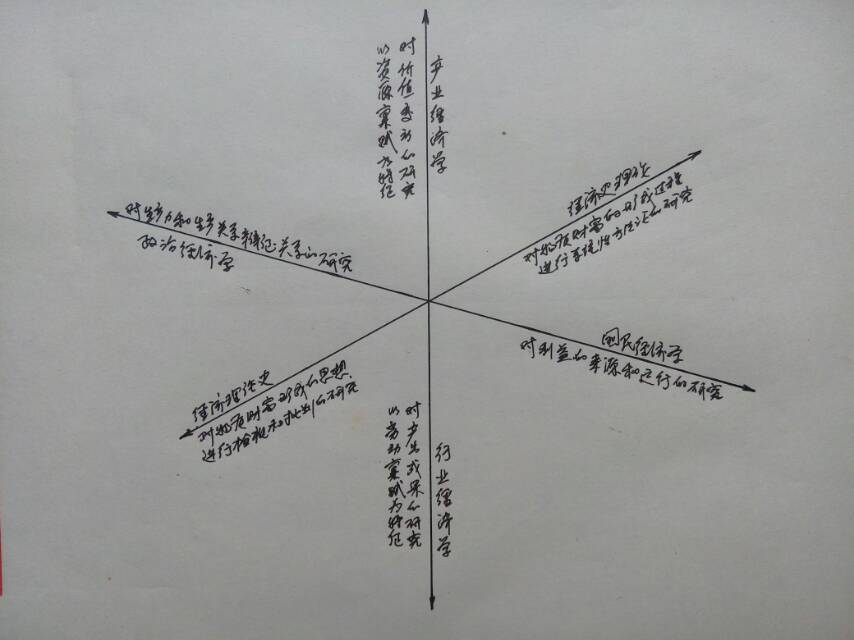 产业经济学
对价值变动的研究
以资源禀赋为特征
经济史理论
对物质财富的形成过程
进行系统性方法论的研究
对生产力和生产关系辩证关系的研究
政治经济学
国民经济学
对利益的来源和运行的研究
经济理论史
对物质财富形成的思想
进行检视和批判的研究
行业经济学
对产出成果的研究
以劳动禀赋为特征